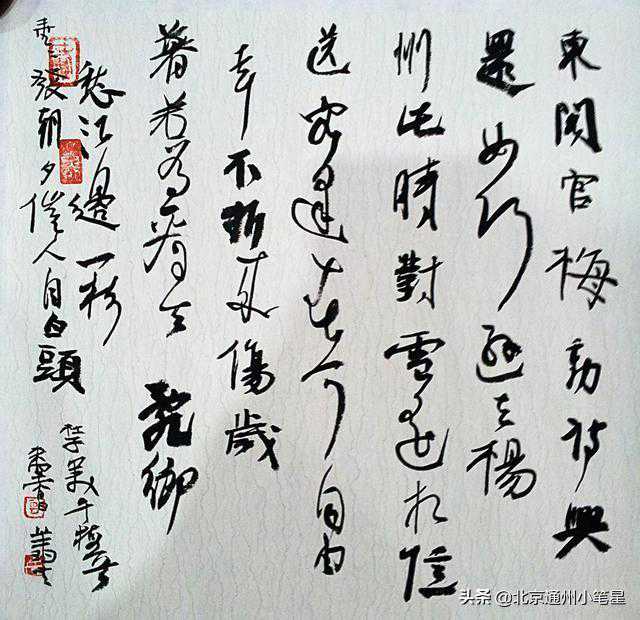 東閣官梅動詩興
還如何遜在楊
州此時對雪遥相憶
送客逢春可自由
幸不折來傷歲
暮若為看去亂鄉
愁江邊一樹
垂垂發朝夕催人自白頭
头条 @北京通州小笔星